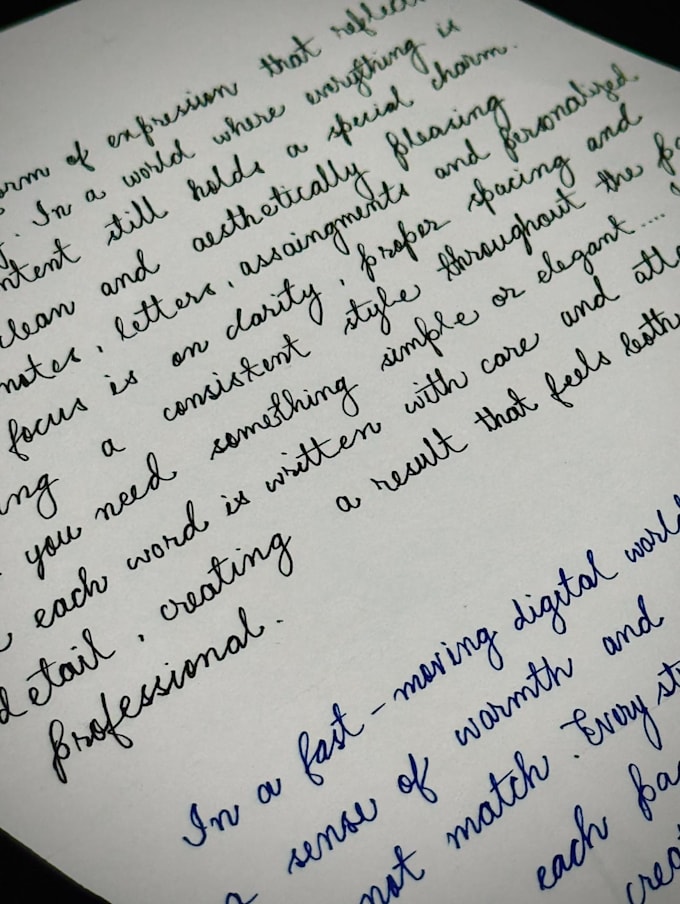 form of expression that reflect
. In a world where everything is
ntent still holds a special charm.
clean and aesthetically pleasing
notes, letters, assaingments and personalized
focus is on clarity, proper spacing and
ng a consistent style throughout the pa
you need something simple or elegant....
each word is written with care and atte
detail, creating a result that feels both
professional.
In a fast-moving digital world
a sense of warmth and
not match. Every str
each pa
creat